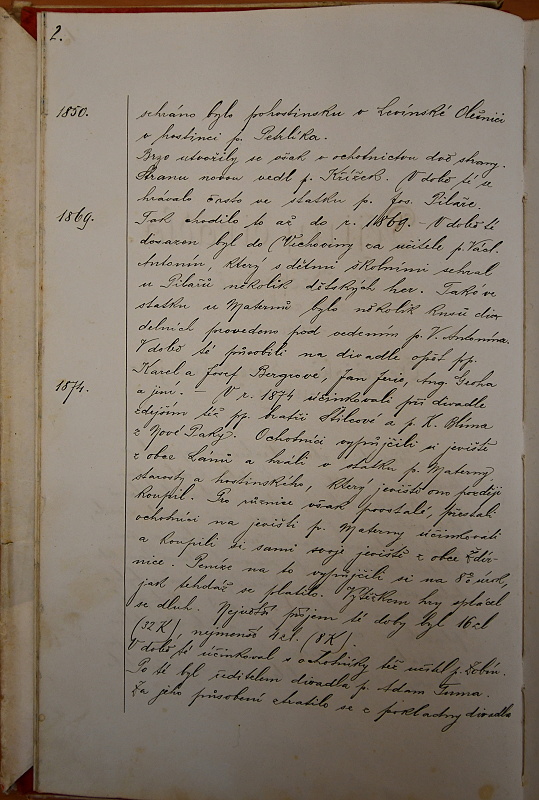 2.
1850. sehráno bylo pohostinsku v Levínské Olešnici
v hostinci p. Petrlíka.
Brzo utvořily se však v ochotnictvu dvě strany.
Stranu novou vedl p. Křížek. V době té se
hrávalo často ve statku p. Jos. Piláře.
1869. Tak chodilo to až do r. 1869. – V době té
dosazen byl do Vrchoviny za učitele p. Václ.
Antonín, který s dětmi školními sehrál
u Pilářů několik dětských her. Také ve
statku u Maternů bylo několik kusů diva
delních provedeno pod vedením p. V. Antonína.
V době té působili na divadle opět pp.
Karel a Josef Bergrové, Jan Jerie, Aug. Groha
1874. a jiní. – V r. 1874 účinkovali při divadle
zdejším též pp. bratři Štilcové a p. K. Klíma
z Nové Paky. Ochotníci vypůjčili si jeviště
z obce Lánů a hráli v statku p. Materny
starosty a hostinského, který jeviště on později
koupil. Pro různice však povstalé, přestali
ochotníci na jevišti p. Materny účinkovati
a koupili si sami svoje jeviště z obce Ždír-
nice. Peníze na to vypůjčili si na 8% úrok,
jak tehdáž se platilo. Výtěžkem hry splácel
se dluh. Největší příjem té doby byl 16 zl
(32 K), nejmenší 4 zl. (8 K).
V době té účinkoval s ochotníky též učitel p.
Po té byl ředitelem divadla p. Adam Tuma.
Za jeho působení ztratilo se z pokladny divadla